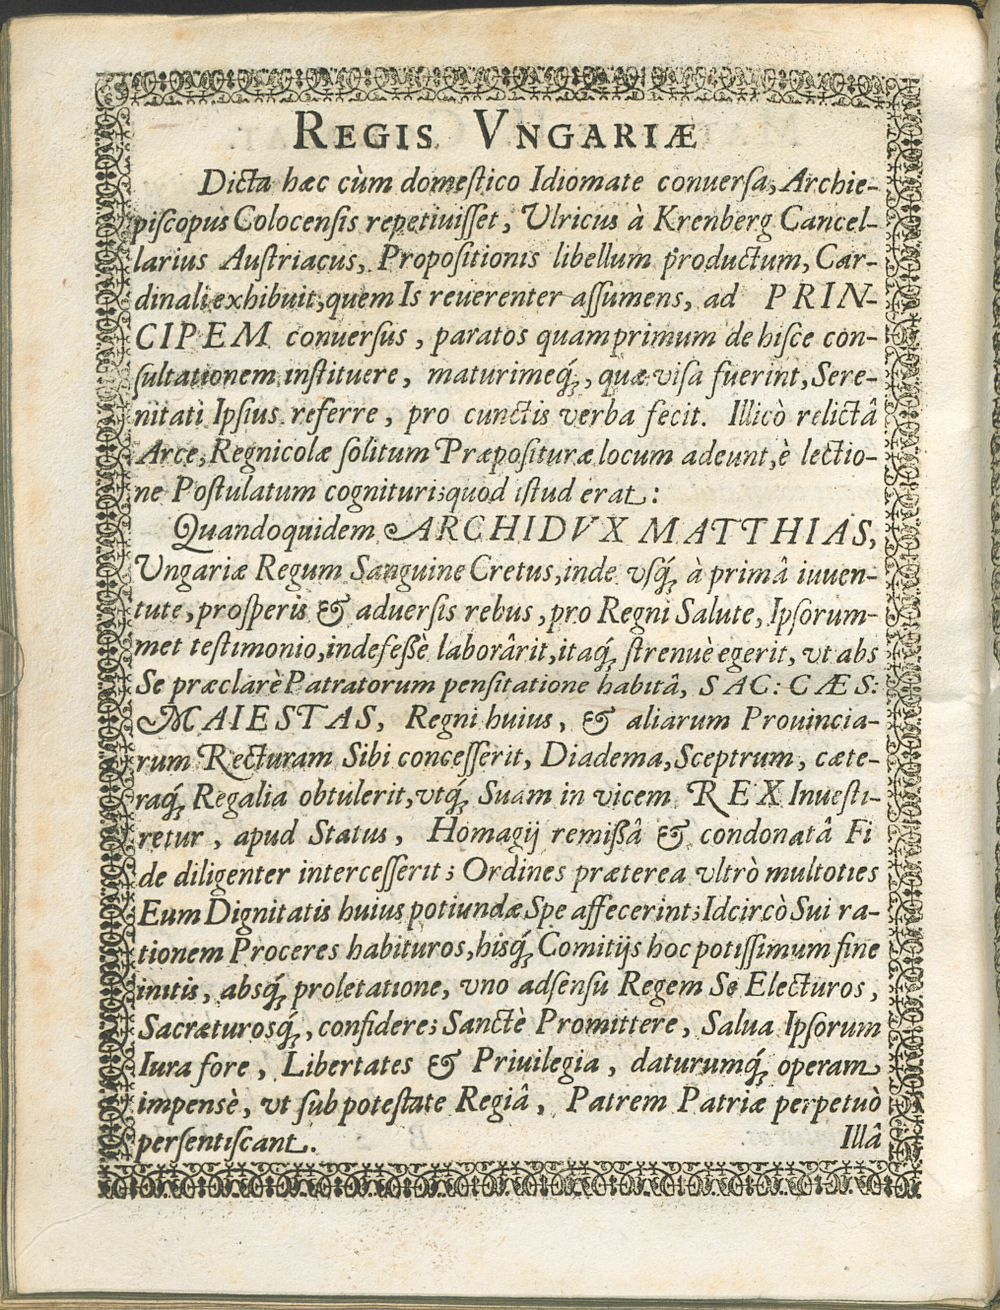 REGIS VNGARIÆ
Dicta hæc cùm domeſtico Idiomate conuerſa, Archie-
piſcopus Colocenſis repetiuiſſet, Ulricus à Krenberg Cancel-
larius Auſtriacus, Propoſitionis libellum productum, Car-
dinali exhibuit, quem Is reuerenter aſſumens, ad PRIN-
CIPEM conuerſus, paratos quamprimum de hiſce con-
ſultationem inſtituere, maturimeq́;, quæ viſa fuerint, Sere-
nitati Ipſius referre, pro cunctis verba fecit. Illicò relictâ
Arce, Regnicolæ ſolitum Præpoſituræ locum adeunt, è lectio-
ne Poſtulatum cognituri; quod iſtud erat:
Quandoquidem ARCHIDVX MATTHIAS,
Ungariæ Regum Sanguine Cretus, inde vſq́; à primâ iuuen-
tute, proſperis & aduerſis rebus, pro Regni Salute, Ipſorum-
met teſtimonio, indefeßè laborârit, itaq́; ſtrenuè egerit, vt abs
Se præclarè Patratorum penſitatione habitâ, SAC: CÆS:
MAIESTAS, Regni huius, & aliarum Prouincia-
rum Recturam Sibi conceſſerit, Diadema, Sceptrum, cæte-
raq́; Regalia obtulerit, vtq́; Suam in vicem REX Inueſti-
retur, apud Status, Homagij remißâ & condonatâ Fi
de diligenter interceſſerit; Ordines præterea vltrò multoties
Eum Dignitatis huius potiundæ Spe affecerint; Idcircò Sui ra-
tionem Proceres habituros, hisq́; Comitijs hoc potiſſimum fine
initis, absq́; proletatione, vno adſenſu Regem Se Electuros,
Sacræturosq́;, confidere; Sanctè Promittere, Salua Ipſorum
Iura fore, Libertates & Priuilegia, daturumq́; operam
impensè, vt ſub poteſtate Regiâ, Patrem Patriæ perpetuò
perſentiſcant. Illâ